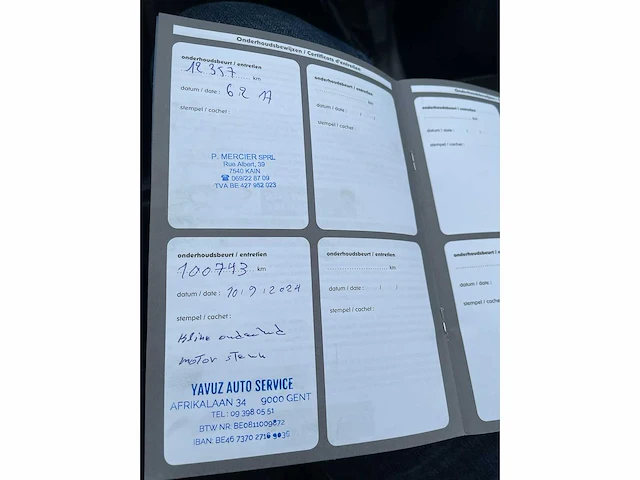 Onderhoudsbewijzen / Certificats d'entretien
onderhoudsbeurt / entretien
12 357 km
datum / date : 6 2 17
stempel / cachet :
P. MERCIER SPRL
Rue Albert, 39
7540 KAIN
☎ 069/22 87 09
TVA BE 427 952 023
onderhoudsbeurt / entretien
km
datum / date : / /
stempel / cachet :
onderhoudsbeurt / entretien
100743 km
datum / date : 10/9/2024
stempel / cachet :
motor
YAVUZ AUTO SERVICE
AFRIKALAAN 34 9000 GENT
TEL : 09 398 05 51
BTW NR: BE0811009872
IBAN: BE46 7370 2716 9036
onderhoudsbeurt / entretien
km
datum / date : / /
stempel / cachet :
onderhoudsbeurt / entretien
km
datum / date : / /
stempel / cachet :
onderhoudsbeurt / entretien
datum / date :
stempel / cachet